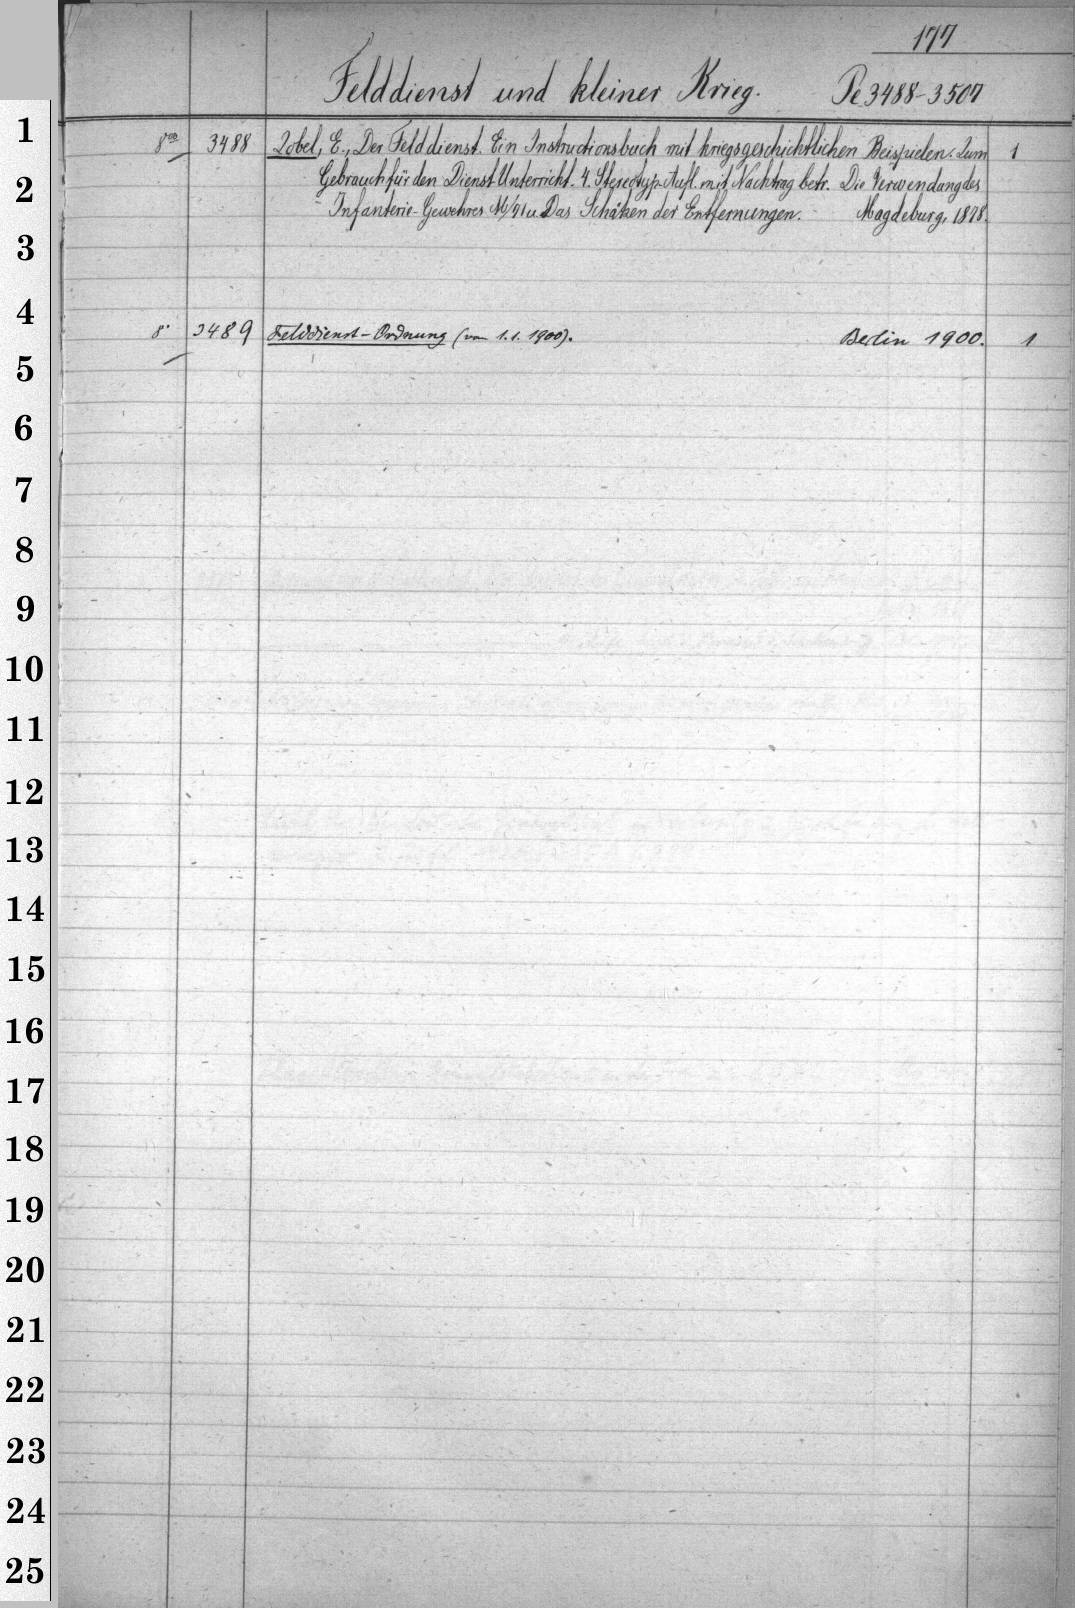 177
Felddienst und kleiner Krieg. Pe 3488-3507
1
8vo 3488 Zobel, E., Der Felddienst. Ein Instructionsbuch mit kriegsgeschichtlichen Beispielen. Zum 1
2
Gebrauch für den Dienst Unterricht. 4. Stereotyp-Aufl. mit Nachtrag betr. Die Verwendung des
Infanterie-Gewehres M/71 u. Das Schätzen der Entfernungen. Magdeburg, 1878.
3
4
8° 3489 Felddienst-Ordnung (vom 1.1.1900). Berlin 1900. 1
5
6
7
8
9
10
11
12
13
14
15
16
17
18
19
20
21
22
23
24
25